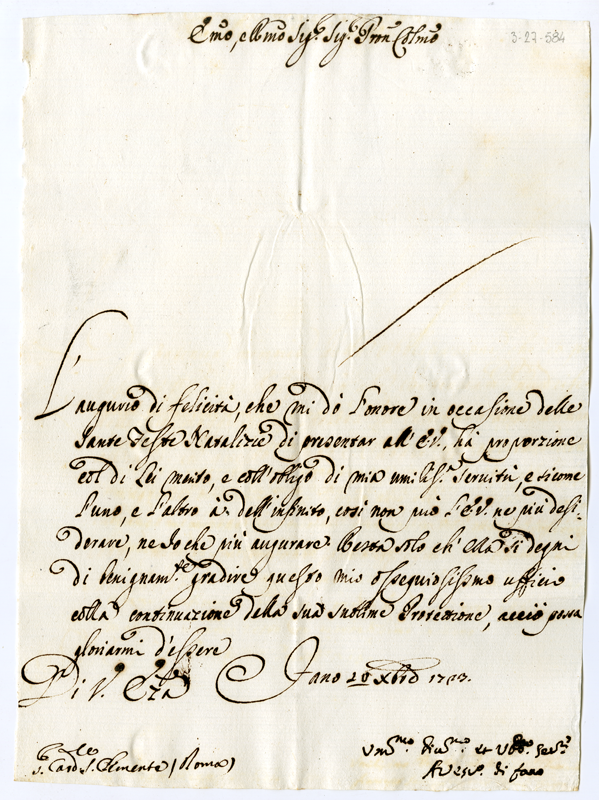 Emo, e Rmo Sig.r Sig.r Pron Colmo
3-27-584
L'augurio di felicità, che mi dò l'onore in occasione delle
Sante Feste Natalizie di presentar all'E.V., hà proporzione
col di Lei merito, e coll'obligo di mia umiliss.a servitù, e sicome
l'uno, e l'altro à dell'infinito, così non può l'E.V. ne più desi-
derare, ne Io che più augurare. Resta solo ch'ella si degni
di benignam.te gradire questo mio ossequiosissimo ufficio
colla continuazione della sua sublime Protettione, acciò possa
gloriarmi d'essere
Di V. Eza
Fano Xbre 1723.
Um.mo Div.mo et Obb.mo Ser.re
S. Card. S. Clemente (Roma)
A Vesc.o di Fano